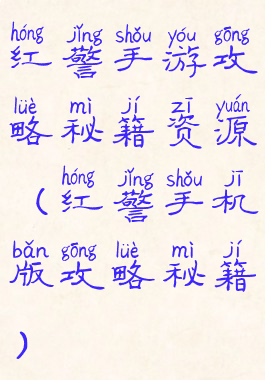 hóng jǐng shǒu yóu gōng
红警手游攻
lüè mì jí zī yuán
略秘籍资源
hóng jǐng shǒu jī
（红警手机
bǎn gōng lüè mì jí
版攻略秘籍
）